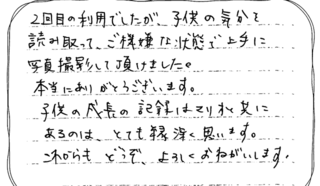 2回目の利用でしたが、子供の気分を
読み取って、ご機嫌な状態で上手に
写真撮影して頂けました。
本当にありがとうございます。
子供の成長の記録は と共に
あるのは、とても縁深く思います。
これからも どうぞ、よろしくおねがいします。